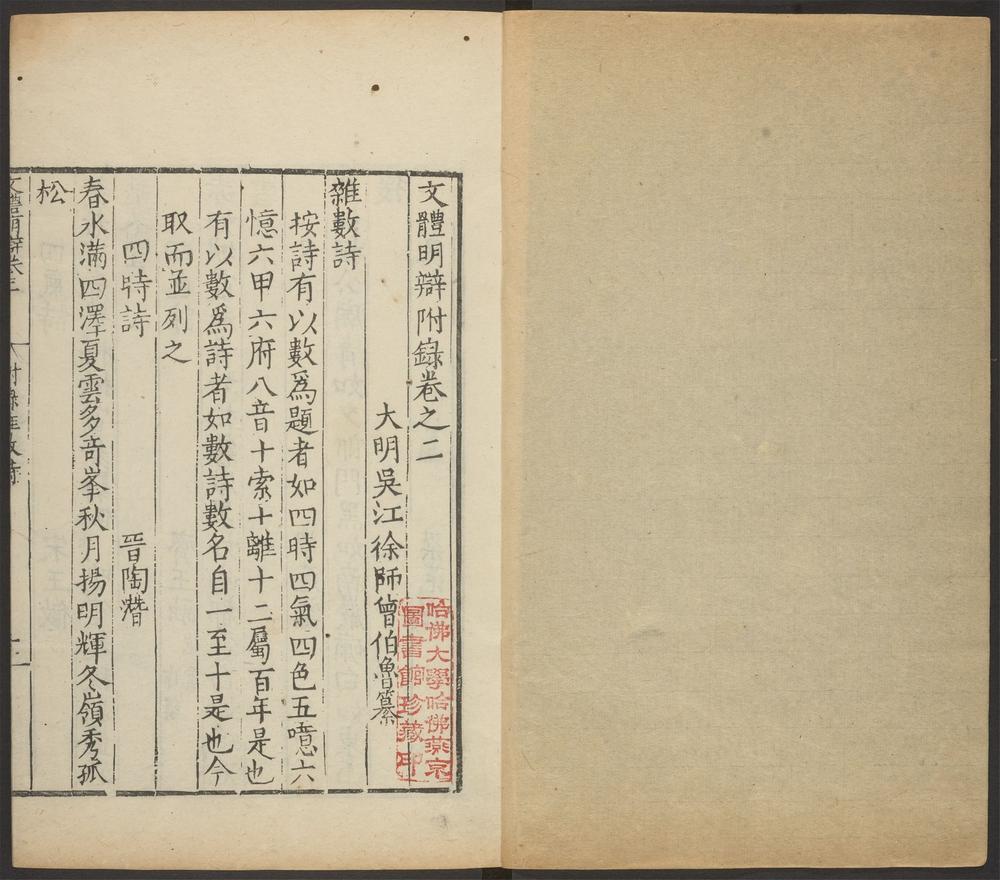 文體明辯附錄卷之二
大明吳江徐師曾伯魯纂
雜數詩
按詩有以數爲題者如四時四氣四色五噫六
憶六甲六府八音十索十離十二屬百年是也
有以數爲詩者如數詩數名自一至十是也今
取而並列之
四時詩 晉陶潛
春水滿四澤夏雲多奇峯秋月揚明輝冬嶺秀孤
松
哈佛大學哈佛燕京
圖書館珍藏印